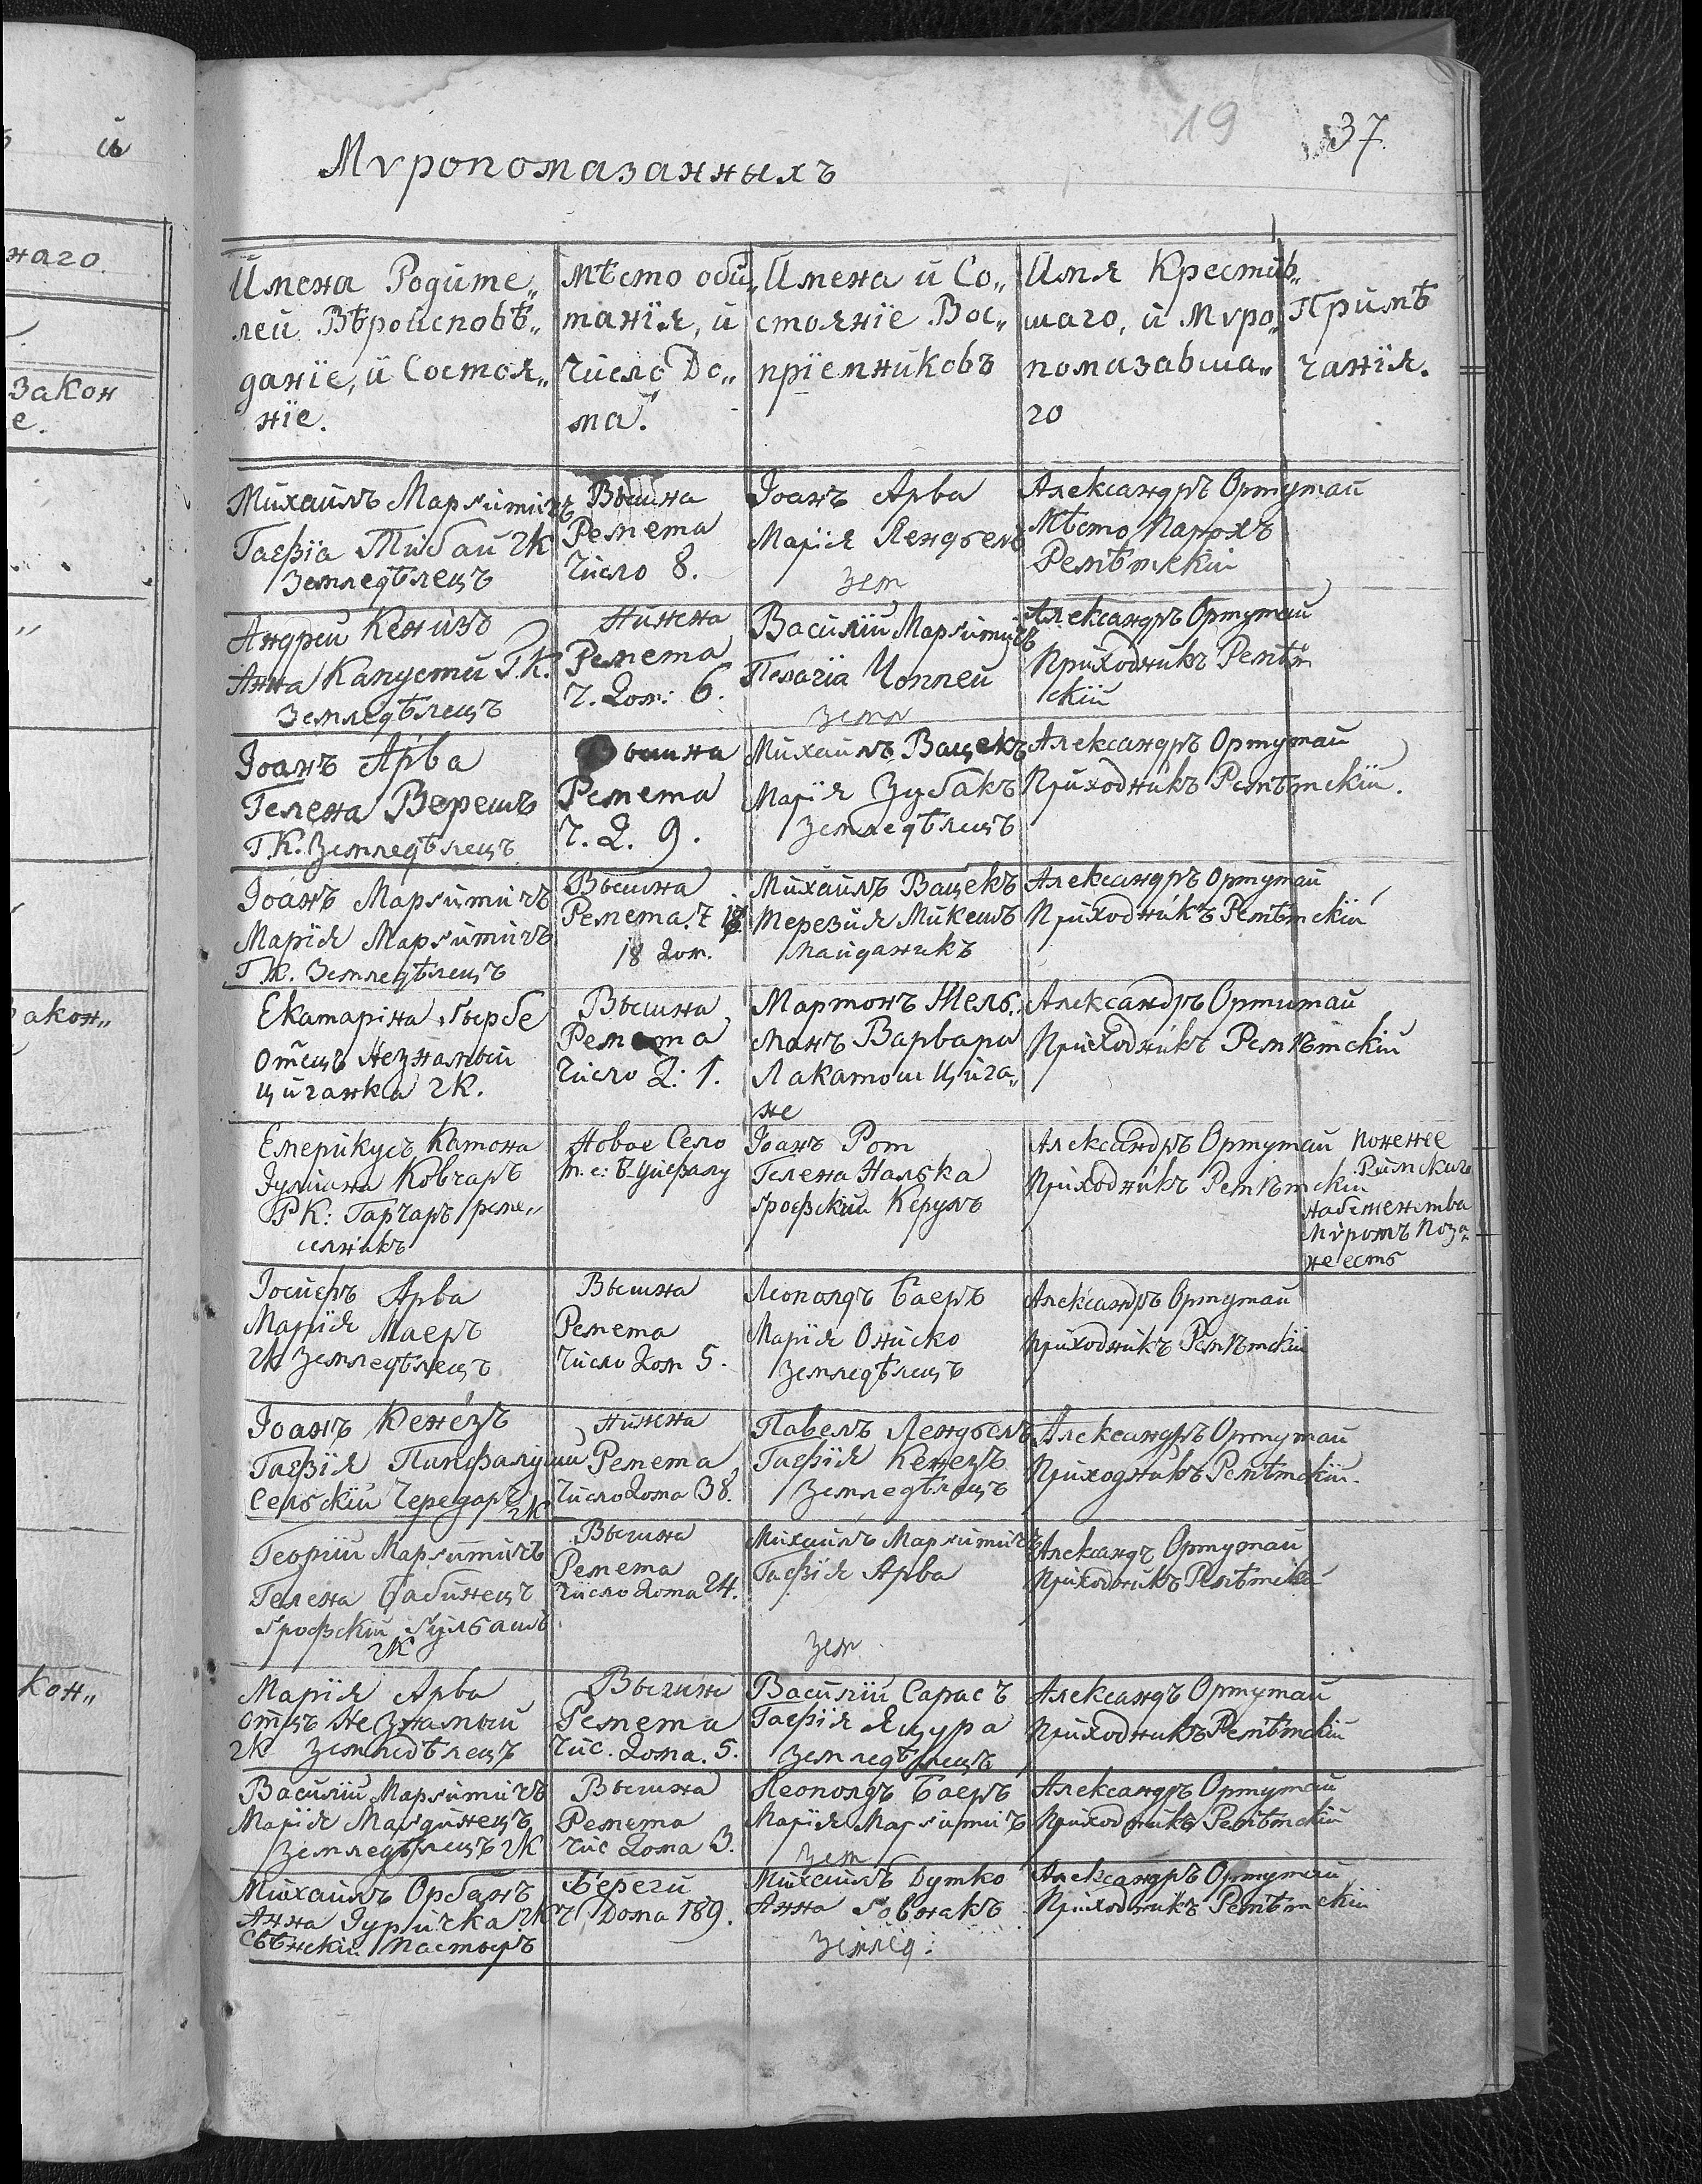 19 37.
Мѵропомазанныхъ
Имена Родите„
лей Вѣроисповѣ„
даніе, и Состоя„
ніе.
Мѣсто оби„
танія, и
Число До„
ма.
Имена и Со„
стояніе Вос„
пріемниковъ
Имя Крестив„
шаго, и Мѵро„
помазавша„
го
Примѣ
чанія.
Михаилъ Маргитичъ
Гафія Тибай гк
Земледѣлецъ
Вышна
Ремета
Число 8.
Іоанъ Арва
Марія Лендьелъ
зем
Александръ Ортутай
Мѣсто Парохъ
Реметскій
Андрей Кенизъ
Анна Капусти Г.К.
Земледѣлецъ
Нижна
Ремета
Ч. Дом: 6.
Василій Маргитичъ
Пелагіа Чоппей
земл
Александръ Ортутай
Приходникъ Реметъ
скій
Іоанъ Арва
Гелена Верешъ
Г.К. Земледѣлецъ
Вышна
Ремета
Ч. Д. 9.
Михаилъ Вацекъ
Марія Зубакъ
Земледѣлецъ
Александръ Ортутай
Приходникъ Реметскій.
Іоанъ Маргитичъ
Марія Маргитичъ
Г.К. Земледѣлецъ
Вышна
Ремета. Ч
18 Дом.
Михаилъ Вацекъ
Терезия Микешъ
Майданикъ
Александръ Ортутай
Приходникъ Реметскій
Екатаріна
Отецъ Незнамый
Циганка гк.
Вышна
Ремета
Число Д: 1.
Мартонъ Жель„
манъ Варвара
Лакатош Цига„
не
Александръ Ортитай
Приходникъ Реметскій
Емерикусъ Катона
Іуліана Ковчаръ
РК: Гарчаръ /реме„
селникъ
Новое Село
т: е:
Іоанъ Рот
Гелена Налька
Грофский Керулъ
Александръ Ортутай
Приходникъ Реметскій
понеже
Римскаго
набоженства
Мѵромъ Пома„
не есть
Іосифъ Арва
Марія Маеръ
гк Земледѣлецъ
Вышна
Ремета
Число Дом 5.
Леополдъ Баеръ
Марія Ониско
Земледѣлецъ
Александръ Ортутай
Приходникъ Реметскій
Іоанъ Кенезъ
Гафія
Сельскій Чередаръ гк
Нижна
Ремета
Число Дома 38.
Павелъ Лендьелъ
Гафія Кенезъ
Земледѣлецъ
Александръ Ортутай
Приходникъ Реметскій.
Георгій Маргитичъ
Гелена Бабинецъ
Грофскій Гульашъ
гк
Вышна
Ремета
Число Дома 24.
Михаилъ Маргитичъ
Гафія Арва
зем
Александъ Ортутай
Приходникъ Реметскій
Марія Арва
отецъ Незнамый
гк Земледѣлецъ
Вышна
Ремета
Чис. Дома. 5.
Василій Сарасъ
Гафія Яцура
Земледѣлецъ
Александъ Ортутай
Приходникъ Реметскій
Василій Маргитичъ
Марія Мардинецъ
Земледѣлецъ гк
Вышна
Ремета
Чис Дома 3.
Леополдъ Баеръ
Марія Маргитичъ
Зем
Александръ Ортутай
Приходникъ Реметскій
Михаилъ Орбанъ
Анна Юричка гк
Пастыръ
Береги
Ч, Дома 189.
Михаилъ Дутко
Анна Говнакъ
Землед:
Александръ Ортутай
Приходникъ Реметскій
наго
закон
е.
закон„
кон„